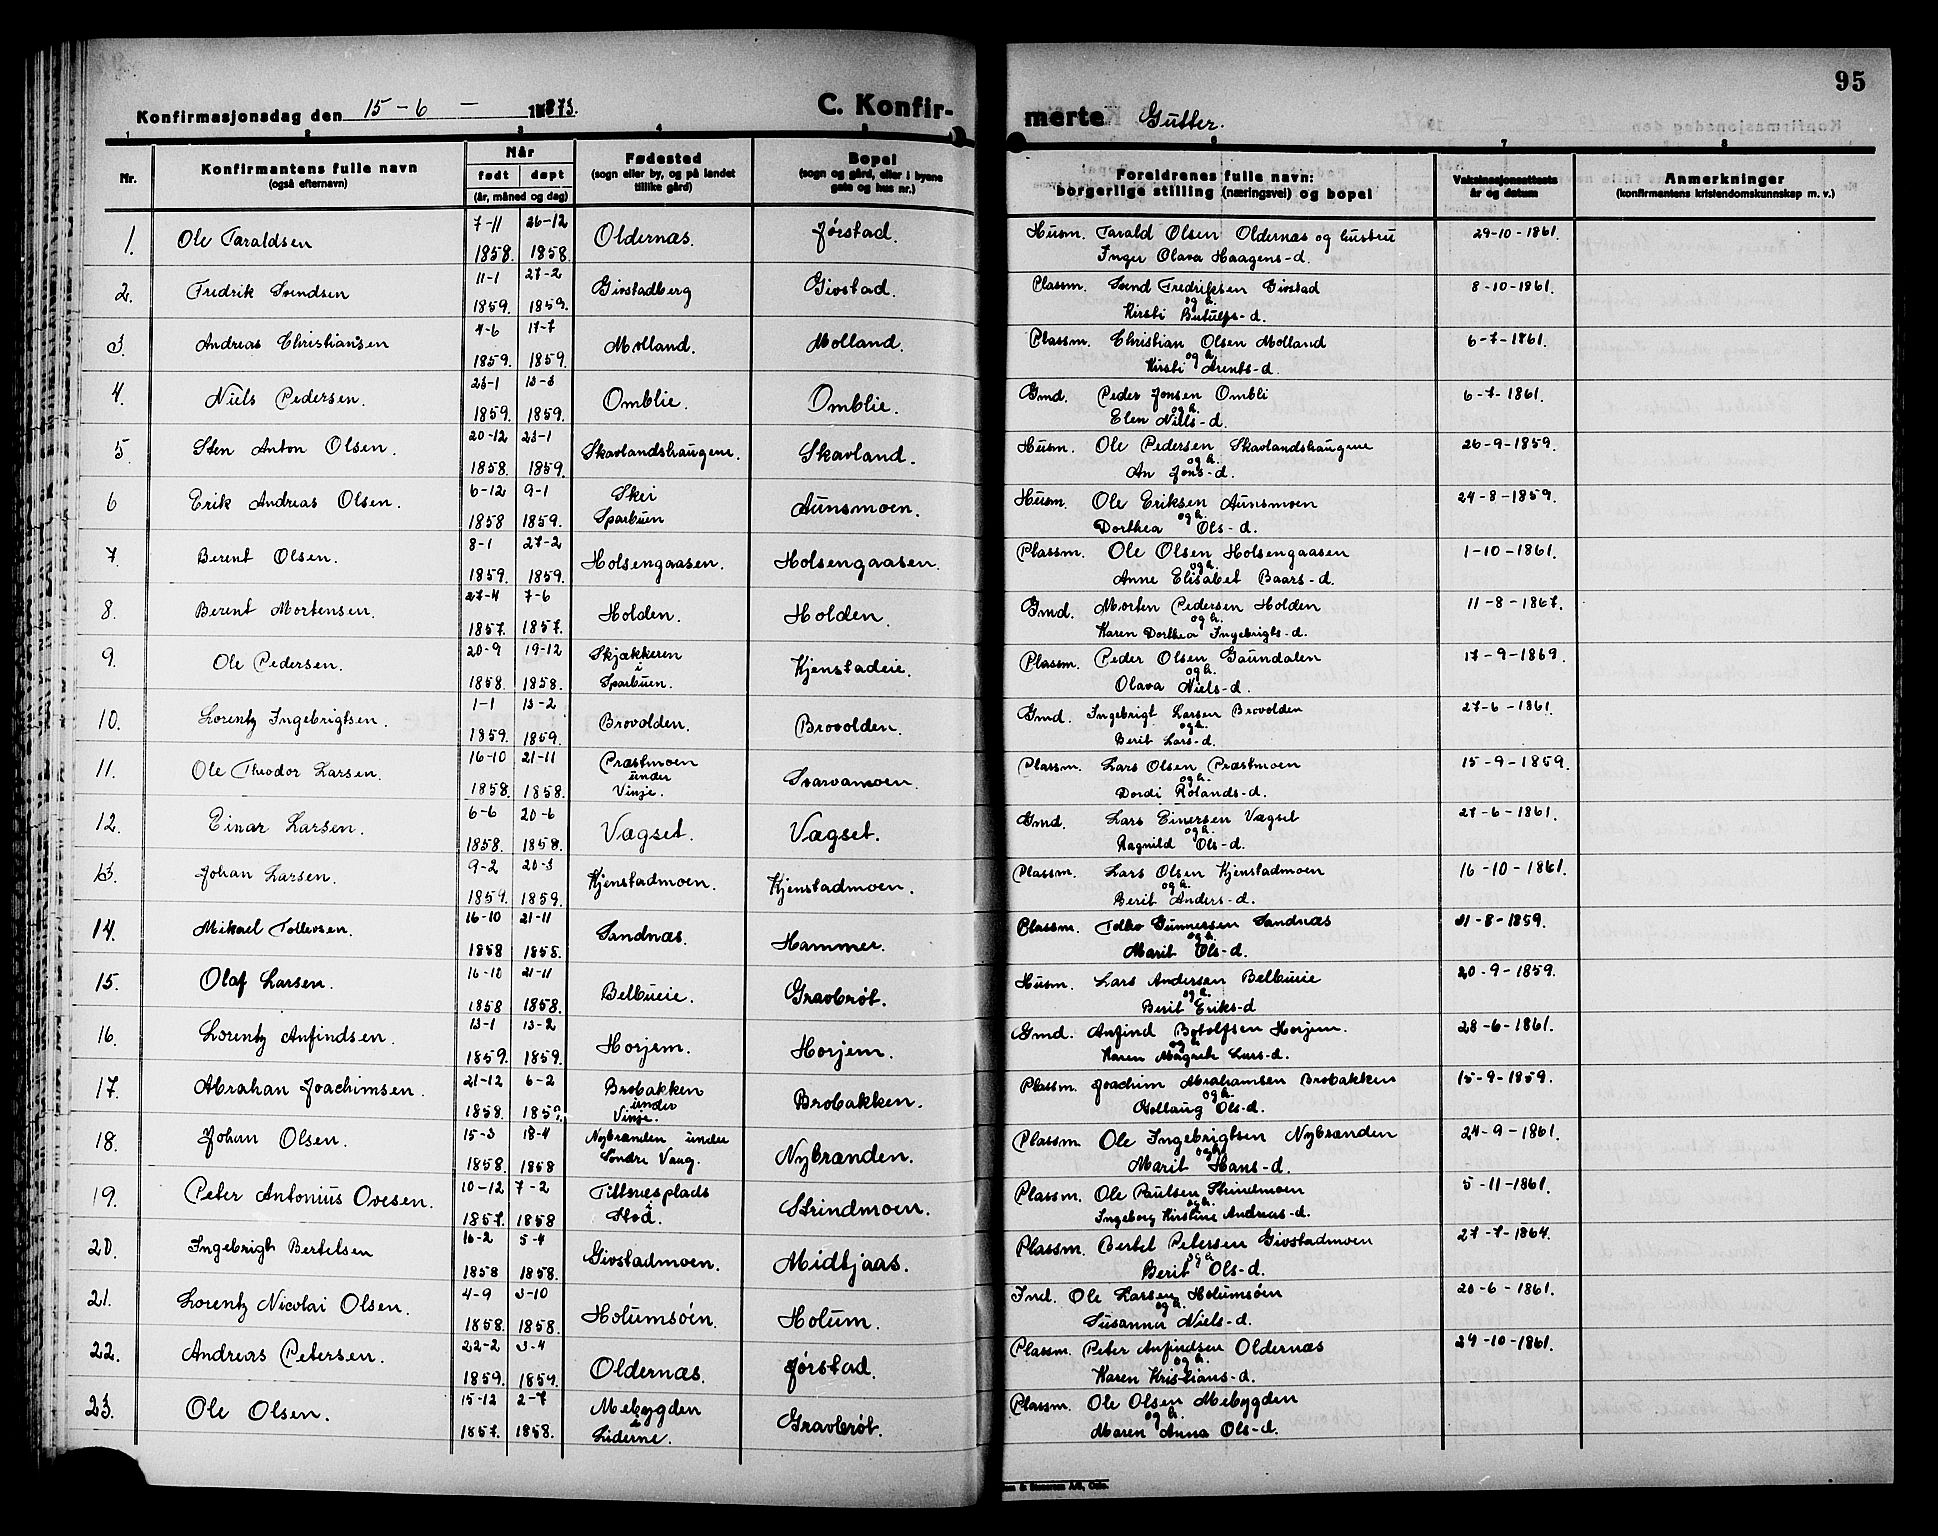 95
Konfirmasjonsdag den 15-6 - 1873. C. Konfir- merte Gutter.
1 2 3 4 5 6 7 8
Nr. Konfirmantens fulle navn (også efternavn) Når født døpt (år, måned og dag) Fødested (sogn eller by, og på landet tillike gård) Bopel (sogn og gård, eller i byene gate og hus nr.) Foreldrenes fulle navn: borgerlige stilling (næringsvei) og bopel Vaksinasjonsattests år og datum Anmerkninger (konfirmantens kristendomskunnskap m. v.)
1. Ole Taraldsen 7-11 1858. 26-12 1858. Oldernæs. Jørstad. Husm. Tarald Olsen Oldernæs og hustru Inger Olava Haagens-d. 29-10-1861.
2. Fredrik Svendsen 11-1 1859. 27-2 1859. Givstadberg Givstad. Plassm. Svend Fredriksen Givstad og h. Kirsti Butulfs-d. 8-10-1861.
3. Andreas Christiansen 4-6 1859. 17-7 1859. Molland. Molland. Plassm. Christian Olsen Molland og h. Kirsti Arents-d. 6-7-1861.
4. Niels Pedersen. 23-1 1859. 13-3 1859. Omblie. Omblie. Gmd. Peder Jonsen Ombli og h. Elen Nills-d. 6-7-1861.
5. Sten Anton Olsen. 20-12 1858. 23-1 1859. Skavlandshaugene. Skavland. Husm. Ole Pedersen Skavlandshaugene og h. An Jons-d. 26-9-1859.
6 Erik Andreas Olsen. 6-12 1858 9-1 1859. Skei Sparbuen Aunsmoen. Husm. Ole Eriksen Aunsmoen og h. Dorthea Ols-d. 24-8-1859.
7. Berent Olsen. 8-1 1859. 27-2 1859. Holsengaasen. Holsengaasen. Plassm. Ole Olsen Holsengaasen og h. Anne Elisabet Baars-d. 1-10-1861.
8. Berent Mortensen. 27-4 1857. 7-6 1857. Holden. Holden. Gmd. Morten Pedersen Holden og h. Karen Dorthea Ingebrigts-d. 11-8-1867.
9. Ole Pedersen. 20-9 1858. 19-12 1858. Skjækkeren i Sparbuen. Kjenstadeie. Plassm. Peder Olsen Gaundalen og h. Olava Niels-d. 17-9-1869.
10. Lorentz Ingebrigtsen. 1-1 1859. 13-2 1859. Brovolden. Brovolden. Gmd. Ingebrigt Larsen Brovolden og h. Berit Lars-d. 27-6-1861.
11. Ole Theodor Larsen. 16-10 1858. 21-11 1858. Præstmoen under Vinje. Svarvamoen. Plassm. Lars Olsen Præstmoen og h. Dordi Rolands-d. 15-9-1859.
12. Einar Larsen. 6-6 1858. 20-6 1858. Vægset. Vægset. Gmd. Lars Einersen Vægset og h. Ragnild Ols-d. 27-6-1861.
13. Johan Larsen. 9-2 1859. 20-3 1859. Kjenstadmoen. Kjenstadmoen. Plassm. Lars Olsen Kjenstadmoen og h. Berit Anders-d. 16-10-1861.
14. Mikael Tollevsen. 16-10 1858 21-11 1858. Sandnæs. Hammer. Plassm. Gunnersen Sandnæs og h. Marit Ols-d. 31-8-1859.
15. Olaf Larsen. 16-10 1858 21-11 1858. Belbueie. Gravbrøt. Husm. Lars Andersen Belbueie og h. Berit Eriks-d 20-9-1859.
16. Lorentz Anfindsen. 13-1 1859. 13-2 1859. Horjem. Horjem. Gmd. Anfind Botolfsen Horjem. og h. Karen Magrete Lars-d. 28-6-1861.
17. Abrahan Joachimsen. 21-12 1858. 6-2 1859. Brobakken under Vinje. Brobakken. Plassm. Joachim Abrahamsen Brobakken og h. Gollaug Ols-d. 15-9-1859.
18. Johan Olsen. 15-3 1858. 18-4 1858 Nybrænden under Søndre Vang. Nybrænden. Plassm Ole Ingebrigtsen Nybrænden og h. Marit Hans-d. 24-9-1861.
19. Peter Antonius Ovesen. 10-12 1857. 7-2 1858 Tiltnesplads i Stod. Strindmoen. Plassm. Ole Paulsen Strindmoen og h. Ingeborg Kirstine Andreas-d. 5-11-1861.
20. Ingebrigt Bertelsen 16-2 1858 5-4 1858. Givstadmoen. Midtjaas. Plassm. Bertel Petersen Givstadmoen og h. Berit Ols-d. 27-7-1864.
21. Lorentz Nicolai Olsen. 4-9 1858. 3-10 1858. Holumsöen. Holum. Ind. Ole Larsen Holumsöen og h. Susanna Niels-d. 20-6-1861.
22. Andreas Petersen. 22-2 1859. 3-4 1859. Oldernæs. Jørstad. Plassm. Peter Anfindsen Oldernæs og h. Karen Kristians-d. 29-10-1861.
23. Ole Olsen. 15-12 1857. 2-7 1858. Mebygden i Liderne. Gravbrøt. Plassm. Ole Olsen Mebygden og h. Maren Anna Ols-d.